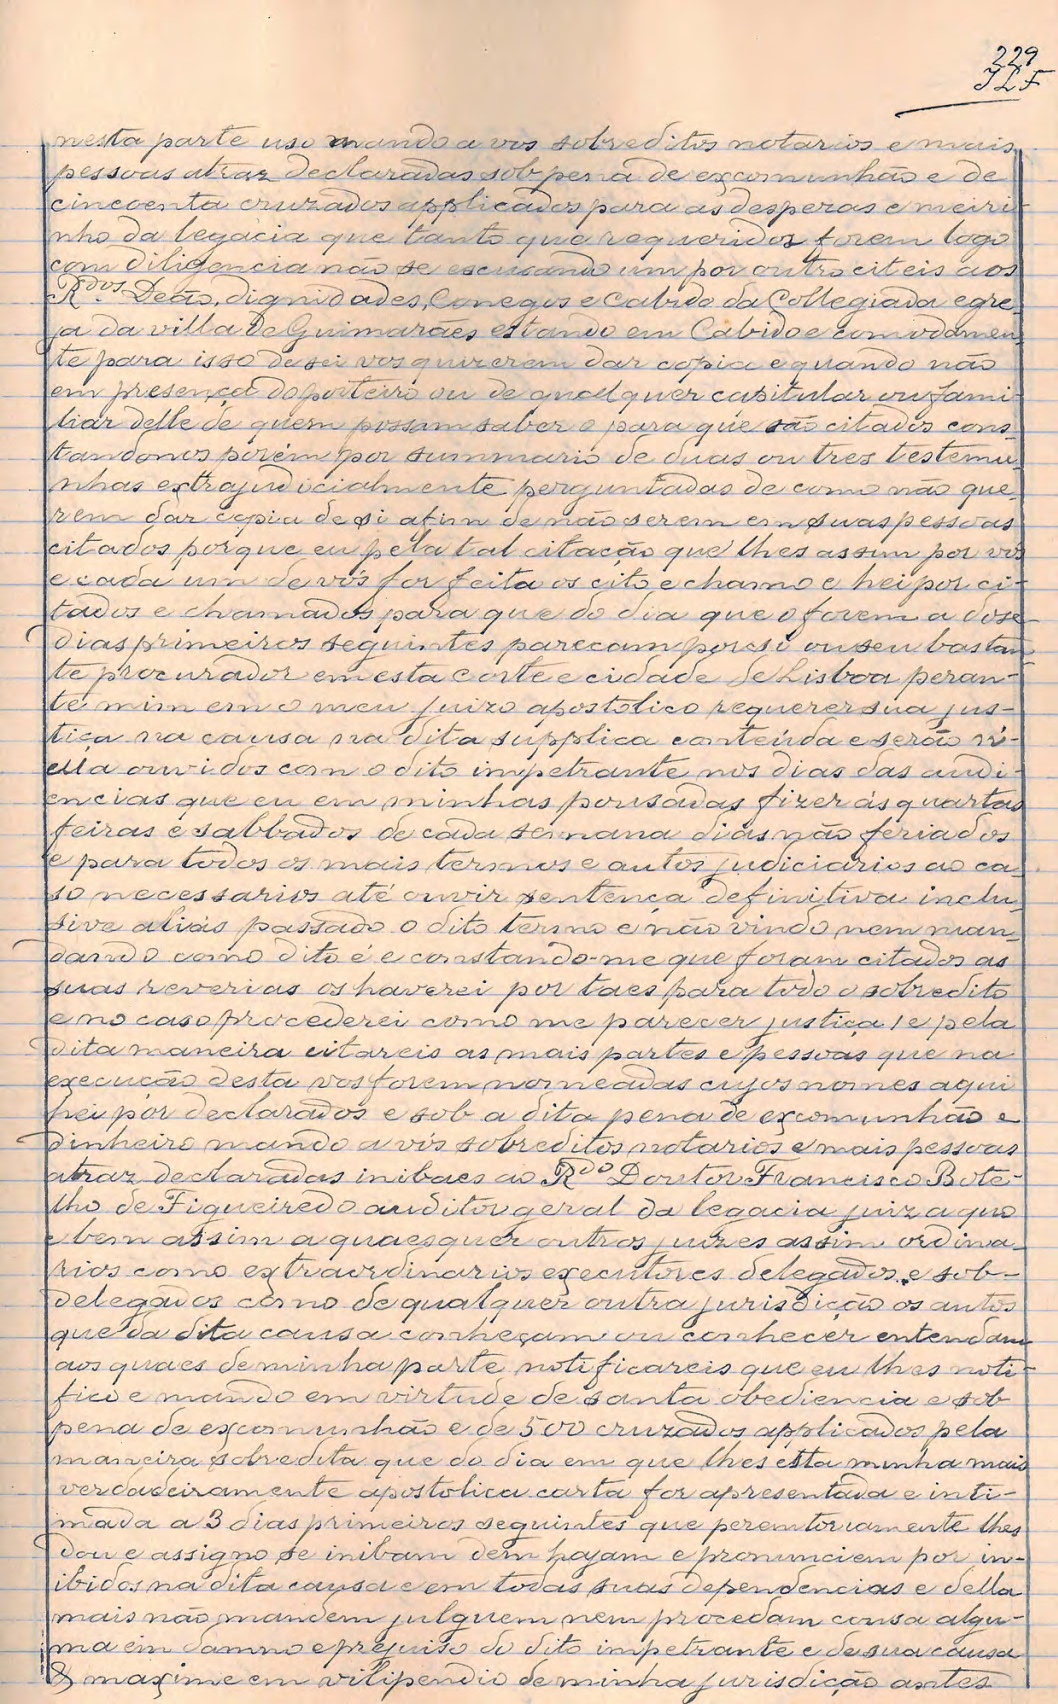 229
JLF
nesta parte uso mando a vos sobreditos notarios e mais
pessoas atraz declaradas sob pena de excomunhão e de
cincoenta cruzados applicados para as despezas e meiri-
nho da legacia que tanto que requeridos forem logo
com diligencia não se escusando um por outro citeis aos
R.dos Deão, dignidades, Conegos e Cabido da Collegiada egre-
ja da villa de Guimarães estando em Cabido e comodamen-
te para isso de sei vos quizerem dar copia e quando não
em presença do porteiro ou de qualquer capitular ou fami-
liar delle de quem possam saber e para que são citados cons-
tandonos porém por summario de duas ou tres testemu-
nhas extrajudicialmente perguntadas de como não que-
rem dar copia de si afim de não serem em suas pessoas
citados porque eu pela tal citação que lhes assim por vós
e cada um de vós for feita os cito e chamo e hei por ci-
tados e chamados para que do dia que o forem a dose
dias primeiros seguintes pareçam por si ou seu bastan-
te procurador em esta corte e cidade de Lisboa peran-
te mim em o meu juizo apostolico requerer sua jus-
tiça na causa na dita supplica conteúda e serão n'-
ella ouvidos com o dito impetrante nos dias das audi-
encias que eu em minhas pousadas fizer ás quartas
feiras e sabbados de cada semana dias não feriados
e para todos os mais termos e autos judiciarios ao ca-
so necessarios até ouvir sentença definitiva inclu-
sive aliás passado o dito termo e não vindo nem man-
dando como dito é e constando-me que foram citados as
suas reverias os haverei por taes para todo o sobredito
e no caso procederei como me parecer justiça, e pela
dita maneira citareis as mais partes e pessoas que na
execução desta vos forem nomeadas cujos nomes aqui
hei por declarados e sob a dita pena de excomunhão e
dinheiro mando a vós sobreditos notarios e mais pessoas
atraz declaradas inibaes ao R.do Doutor Francisco Bote-
lho de Figueiredo auditor geral da legacia juiz a quo
e bem assim a quaesquer outros juizes assim ordina-
rios como extraordinarios executores delegados e sob-
delegados como de qualquer outra jurisdição os autos
que da dita causa conheçam ou conhecer entendam
aos quaes de minha parte notificareis que eu lhes noti-
fico e mando em virtude de santa obediencia e sob
pena de excomunhão e de 500 cruzados applicados pela
maneira sobredita que do dia em que lhes esta minha mais
verdadeiramente apostolica carta for apresentada e inti-
mada a 3 dias primeiros seguintes que peremtoriamente lhes
dou e assigno se inibam dem hajam e pronunciem por in-
ibidos na dita causa e em todas suas dependencias e della
mais não mandem julguem nem procedam cousa algu-
ma em damno e prejuiso do dito impetrante e de sua causa
& maxime em vilipendio de minha jurisdicção antes